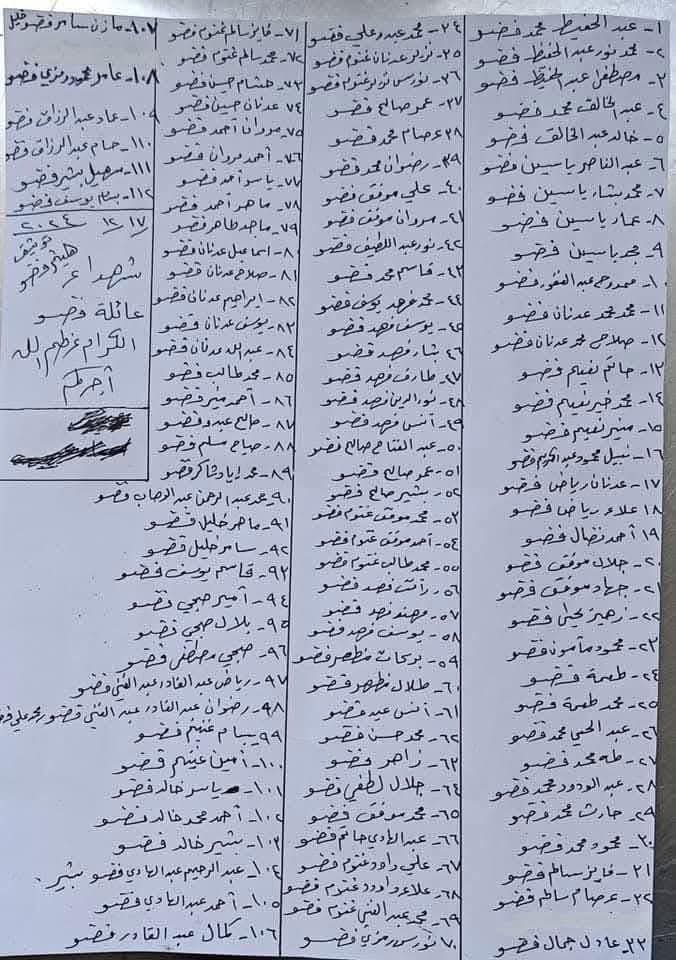 ١- عبد الحفيظ محمد قضو
٢- محمد نور عبد الحفيظ قضو
٣- مصطفى عبد الحفيظ قضو
٤- عبد الخالق محمد قضو
٥- خالد عبد الخالق قضو
٦- عبد الناصر ياسين قضو
٧- محمد بشار ياسين قضو
٨- عماد ياسين قضو
٩- مجد ياسين قضو
١٠- ممدوح عبد الغفور قضو
١١- محمد محمد عدنان قضو
١٢- صلاح محمد عدنان قضو
١٣- حاتم نعيم قضو
١٤- محمد خير نعيم قضو
١٥- منير نعيم قضو
١٦- نبيل محمود عبد الكريم قضو
١٧- عدنان رياض قضو
١٨- علاء رياض قضو
١٩- أحمد نضال قضو
٢٠- جلال موفق قضو
٢١- جهاد موفق قضو
٢٢- زهير يحيى قضو
٢٣- محمود مأمون قضو
٢٤- طعمة قضو
٢٥- محمد طعمة قضو
٢٦- عبد الحي محمد قضو
٢٧- طه محمد قضو
٢٨- عبد الودود محمد قضو
٢٩- حارث محمد قضو
٣٠- محمود محمد قضو
٣١- فايز سالم قضو
٣٢- عصام سالم قضو
٣٣- عادل جمال قضو
٣٤- محمد عبدو علي قضو
٣٥- نزار عدنان غنوم قضو
٣٦- نورس نزار غنوم قضو
٣٧- عمر صالح قضو
٣٨- عصام محمد قضو
٣٩- رضوان محمد قضو
٤٠- علي موفق قضو
٤١- مروان موفق قضو
٤٢- نور عبد اللطيف قضو
٤٣- قاسم محمد قضو
٤٤- محمد فهد يوسف قضو
٤٥- يوسف فهد قضو
٤٦- بشار فهد قضو
٤٧- طارق فهد قضو
٤٨- نور الدين فهد قضو
٤٩- أنس فهد قضو
٥٠- عبد الفتاح صالح قضو
٥١- عمر صالح قضو
٥٢- بشير صالح قضو
٥٣- محمد موفق غنوم قضو
٥٤- أحمد موفق غنوم قضو
٥٥- محمد طالب غنوم قضو
٥٦- رأفت فهد قضو
٥٧- مهند فهد قضو
٥٨- يوسف فهد قضو
٥٩- بركات مظهر قضو
٦٠- طلال مظهر قضو
٦١- أنس عيد قضو
٦٢- محمد حسن قضو
٦٣- زاهر قضو
٦٤- جلال لطفي قضو
٦٥- محمد موفق قضو
٦٦- عبد الهادي حاتم قضو
٦٧- علي داود غنوم قضو
٦٨- علاء داود غنوم قضو
٦٩- محمد عبد الغني غنوم قضو
٧٠- نورس رمزي قضو
٧١- فايز سالم غنوم قضو
٧٢- محمد سالم غنوم قضو
٧٣- هشام حسن قضو
٧٤- عدنان حسين قضو
٧٥- مروان أحمد قضو
٧٦- أحمد مروان قضو
٧٧- ياسر أحمد قضو
٧٨- ماهر أحمد قضو
٧٩- ماجد طاهر قضو
٨٠- اسماعيل عدنان قضو
٨١- صلاح عدنان قضو
٨٢- ابراهيم عدنان قضو
٨٣- يوسف عدنان قضو
٨٤- عبد الله عدنان قضو
٨٥- محمد طالب قضو
٨٦- أحمد منير قضو
٨٧- صالح عبدو قضو
٨٨- صباح مسلم قضو
٨٩- محمد إياد شاكر قضو
٩٠- محمد عبد الرحمن عبد الوهاب قضو
٩١- ماهر خليل قضو
٩٢- سامر خليل قضو
٩٣- قاسم يوسف قضو
٩٤- أمير صبحي قضو
٩٥- بلال صبحي قضو
٩٦- صبحي مصطفى قضو
٩٧- رياض عبد القادر عبد الغني قضو
٩٨- رضوان عبد القادر عبد الغني قضو محمد علي قضو
٩٩- بسام غنوم قضو
١٠٠- أمين قضو
١٠١- ياسر خالد قضو
١٠٢- أحمد محمد خالد قضو
١٠٣- بشير خالد قضو
١٠٤- عبد الرحيم عبد الهادي قضو بشير
١٠٥- أحمد عبد الهادي قضو
١٠٦- كمال عبد القادر قضو
١٠٧- مازن سامر قضو خليل
١٠٨- عامر محمود رمزي قضو
١٠٩- عماد عبد الرزاق قضو
١١٠- حسام عبد الرزاق قضو
١١١- سهيل بشير قضو
١١٢- بسام يوسف قضو
١٧/ ١٢/ ٢٠٢٤
توثيق
هيثم قضو
شهداء
عائلة قضو
الكرام عظم الله
أجركم